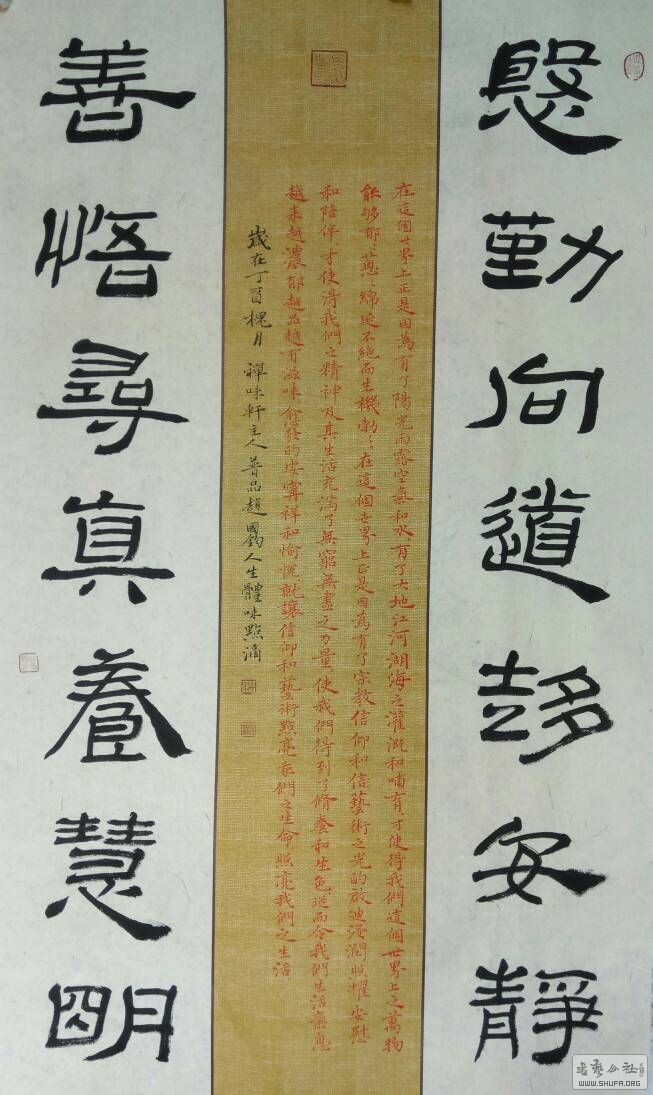 慇勤向道趍安靜
在這個世界上正是因為有了陽光雨露空氣和水有了大地江河湖海之灌溉和哺育才使得我們這個世界上之萬物
能够郁:葱:綿延不絕而生機勃:在這個世界上正是因為有了宗教信仰和信藝術之光的啟迪浸潤照耀安慰
和陪伴才使得我們之精神及其生活充滿了無窮無盡之力量使我們得到了脩養和生色進而令我們生活氣息
越来越濃郁越品越有滋味愈發的安寧祥和愉悅就讓信仰和藝術點亮我們之生命照亮我們之生活
歲在丁酉槐月 禪味軒主人普品趙國鈞人生體味點滴
善悟尋真養慧明
书艺公社
WWW.SHUFA.ORG